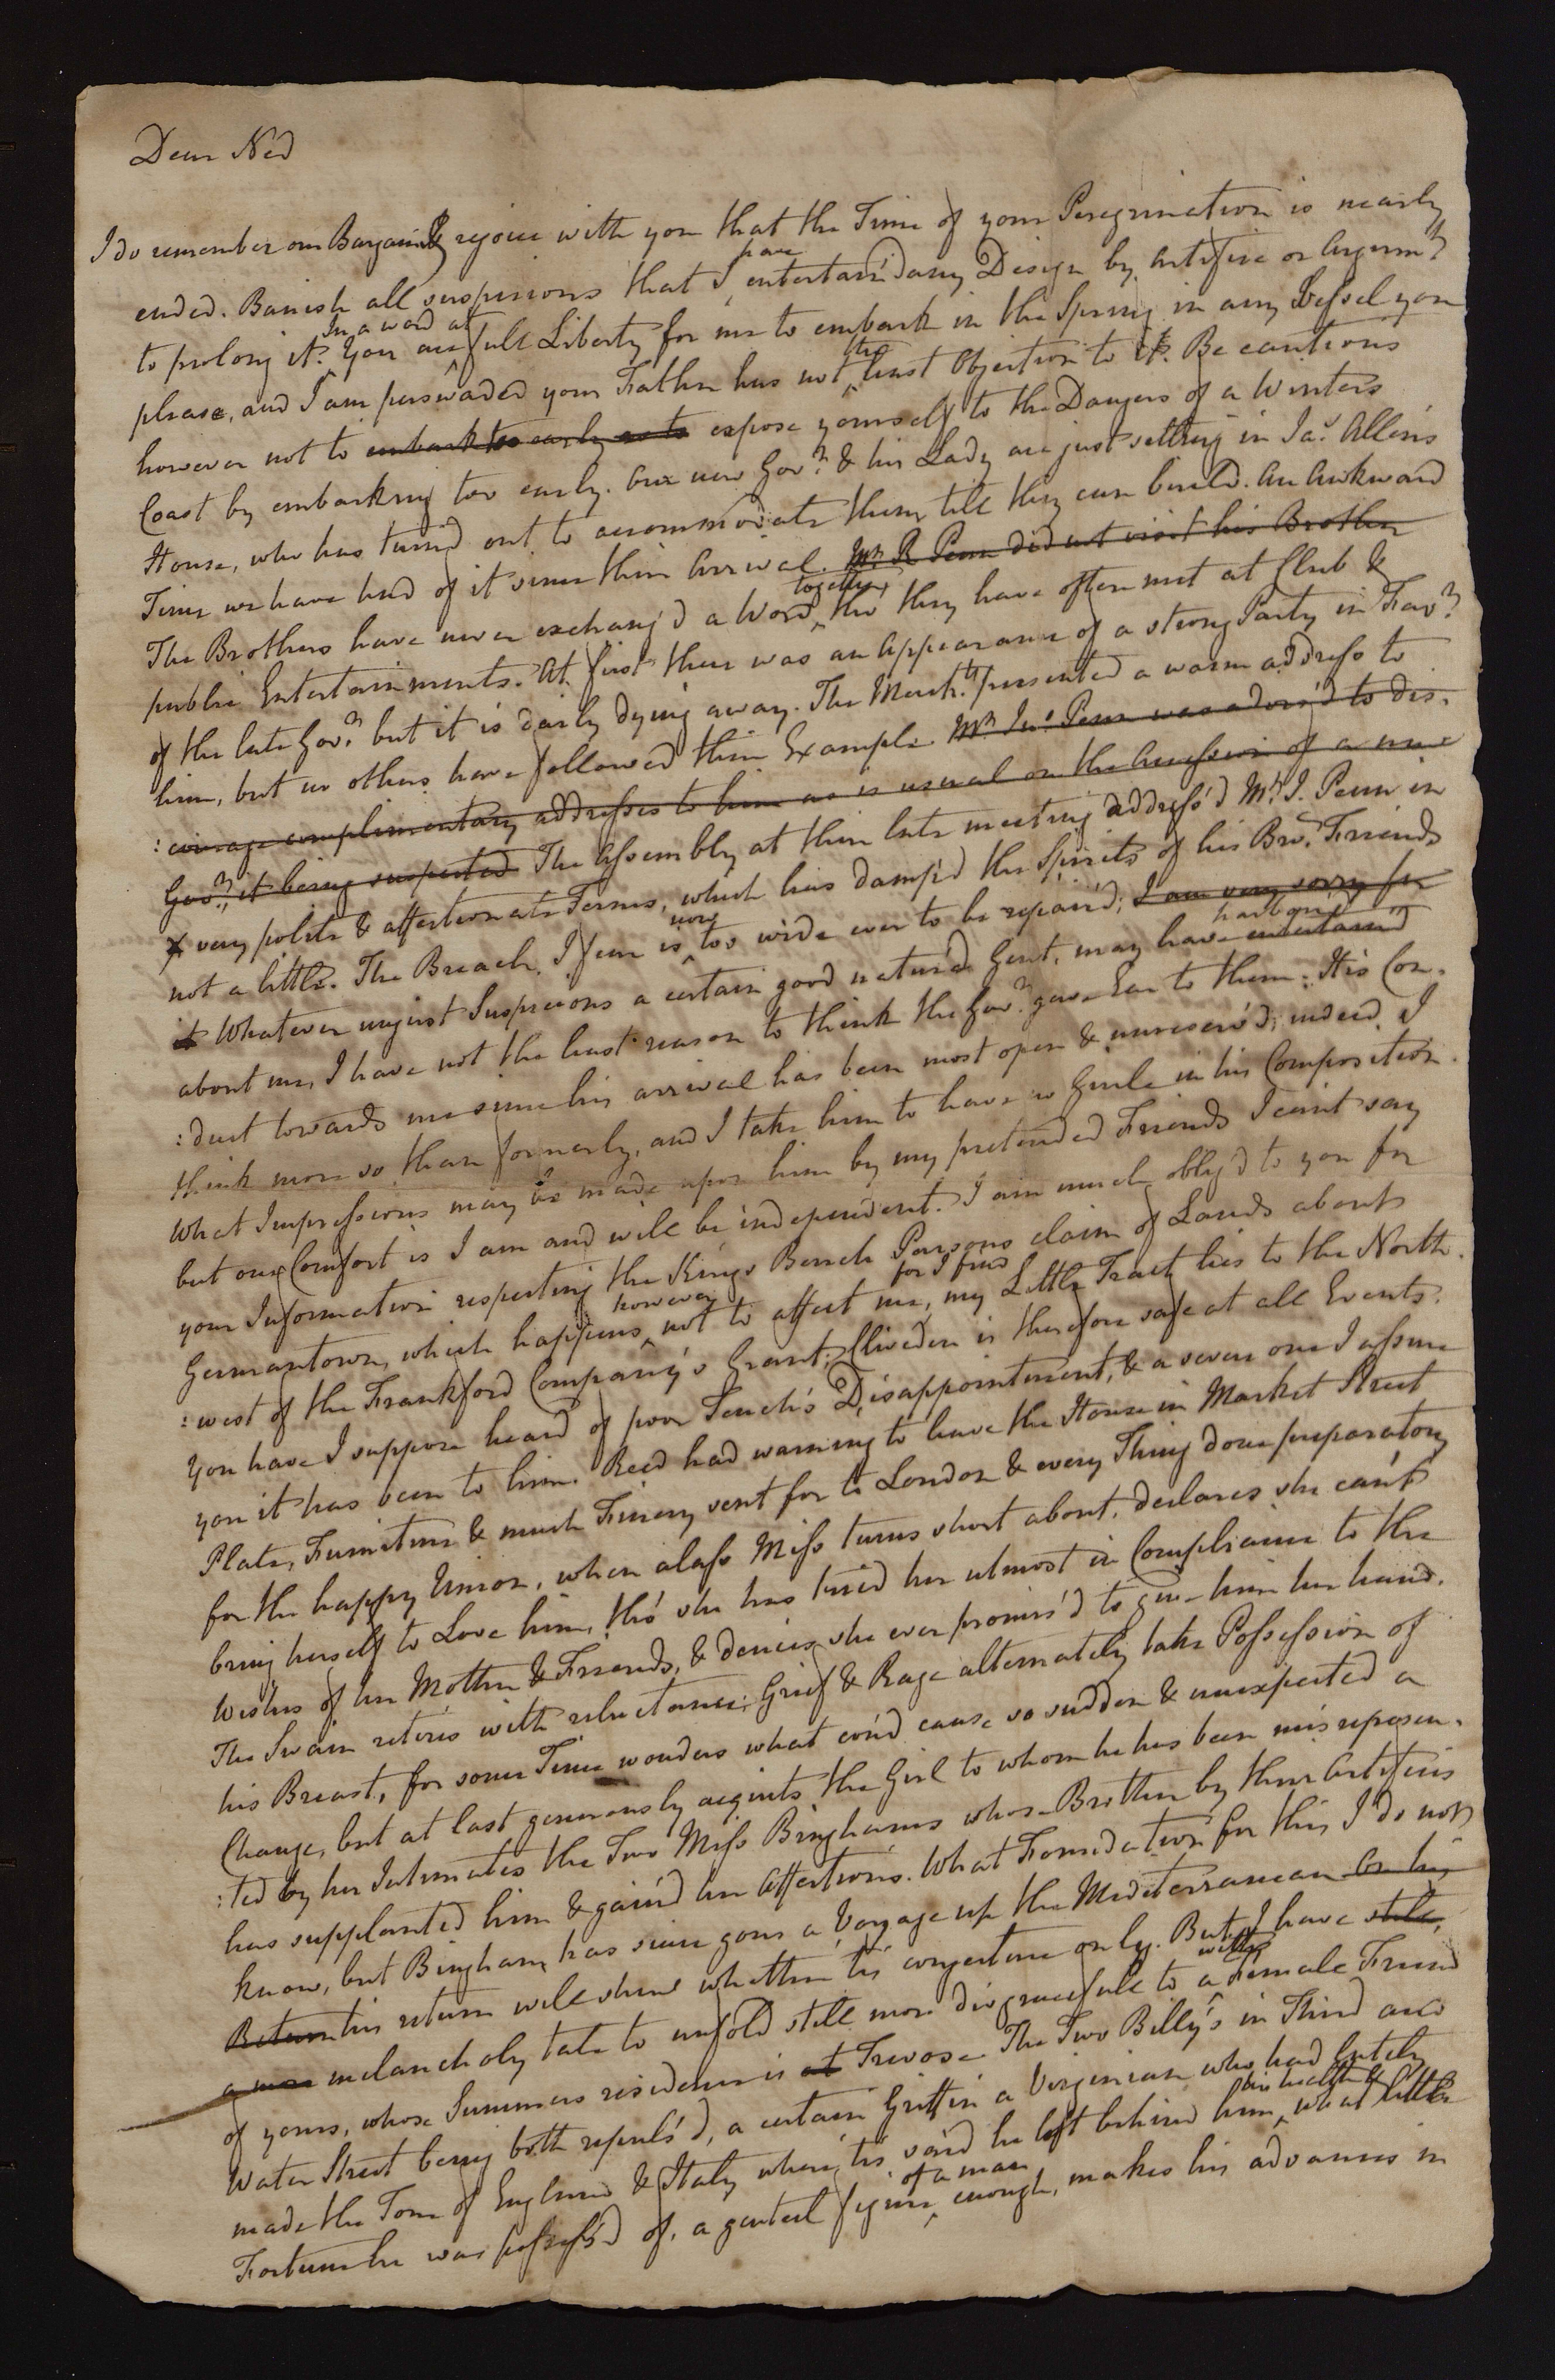 Dear Ned
I do remember our Bargain & rejoice with you that the Time of your Peregrination is nearly
ended. Banish all suspicions that I have entertain'd any Design by Artifice or Argumt
to prolong it. In a word You are at full Liberty for me to embark in the Spring in any Vessel you
please, and I am perswaded your Father has not the least Objection to it. Be cautious
however not to embark too early as to expose yourself to the Dangers of a Winters
Coast by embarking too early. Our new Govr & his Lady are just settling in Jas Allen's
House, who has turn'd out to accommodate them till they can build. An Awkward
Time we have had of it since their Arrival. Mr R Penn did not visit his Brother
The Brothers have never exchang'd a Word together, tho they have often met at Club &
public Entertainments. At first there was an Appearance of a strong Party in Favr
of the late Govr but it is daily dying away. The Mercht's presented a warm address to
him, but no others have followed their Example Mr Jno Penn was advis'd to dis-
:courage complimentary addresses to him as is usual on the Accession of a new
Govr, it being suspected The Assembly at their late meeting address'd Mr J. Penn in
very polite & affectionate Terms, which has damp'd the Spirits of his Bro's Friends
not a little. The Breach, I fear is now too wide ever to be repair'd, I am very sorry for
it Whatever unjust Suspicions a certain good natur'd Gent. may have entertain'd harbour'd
about me, I have not the least reason to think the Govr gave Ear to them: His Con-
:duct towards me since his arrival has been most open & unreserv'd; indeed I
think more so than formerly, and I take him to have no Guile in his Composition.
What Impressions may be made upon him by my pretended Friends I can't say
but our Comfort is I am and will be independent. I am much oblig'd to you for
your Information respecting the Kings Bench Parsons claim of Lands about
Germantown, which happens however not to affect me, for I find my Little Tract lies to the North-
:west of the Frankford Company's Grant; Cliveden is therefore safe at all Events.
You have I suppose heard of poor Tench's Disappointment, & a severe one I assure
you it has been to him. Reed had warning to leave the House in Market Street
Plate, Furniture & much Finery sent for to London & every Thing done preparatory
for the happy Union, when alass Miss turns short about, declares she can't
bring herself to Love him, tho' she has tried her utmost in Compliance to the
Wishes of her Mother & Friends, & denies she ever promis'd to give him her hand.
The Swain retires with reluctance; Grief & Rage alternately take Possession of
his Breast, for some Time wonders what cou'd cause so sudden & unexpected a
Change, but at last generously acquits the Girl to whom he has been misrepresen-
:ted by her Intimates the Two Miss Binghams whose Brother by their Artifices
has supplanted him & gain'd her Affections. What Foundation for this I do not
know, but Bingham has since gone a Voyage up the Mediterranean On his
Return his return will shew whether tis conjecture only. But I have still
a more melancholy tale to unfold still more disgracefull to with a Female Friend
of yours, whose Summers residence is at Trevose The Two Billy's in Third and
Water Street being both repuls'd, a certain Griffin a Virginian who had lately
made the Tour of England & Italy where, tis said he left behind him his health & what little
Fortune he was possess'd of, a genteel figure of a man enough, makes his advances in